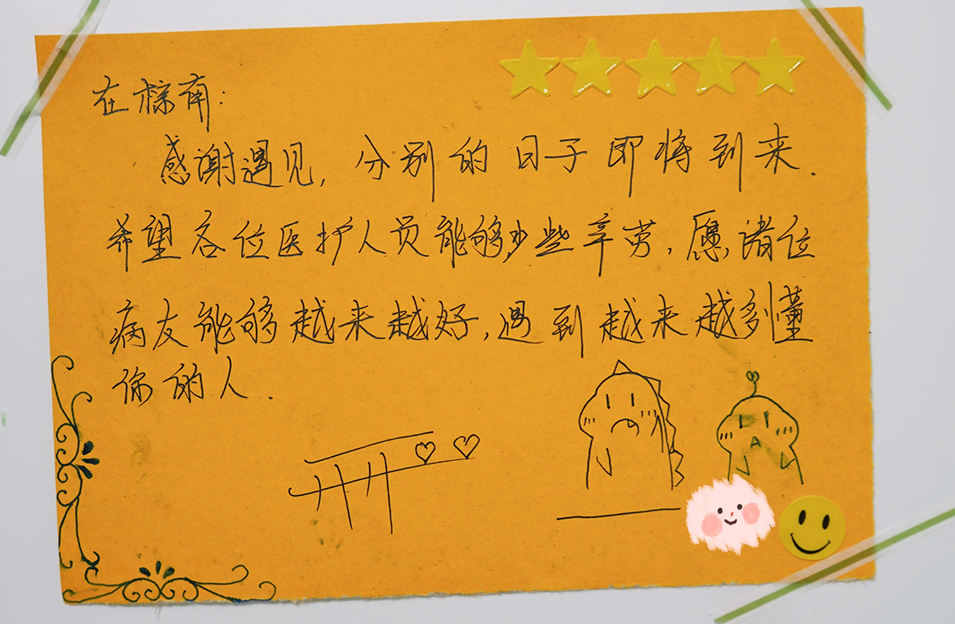 在棕南:
感谢遇见,分别的日子即将到来.
希望各位医护人员能够少些辛劳,愿诸位
病友能够越来越好,遇到越来越多懂
你的人.